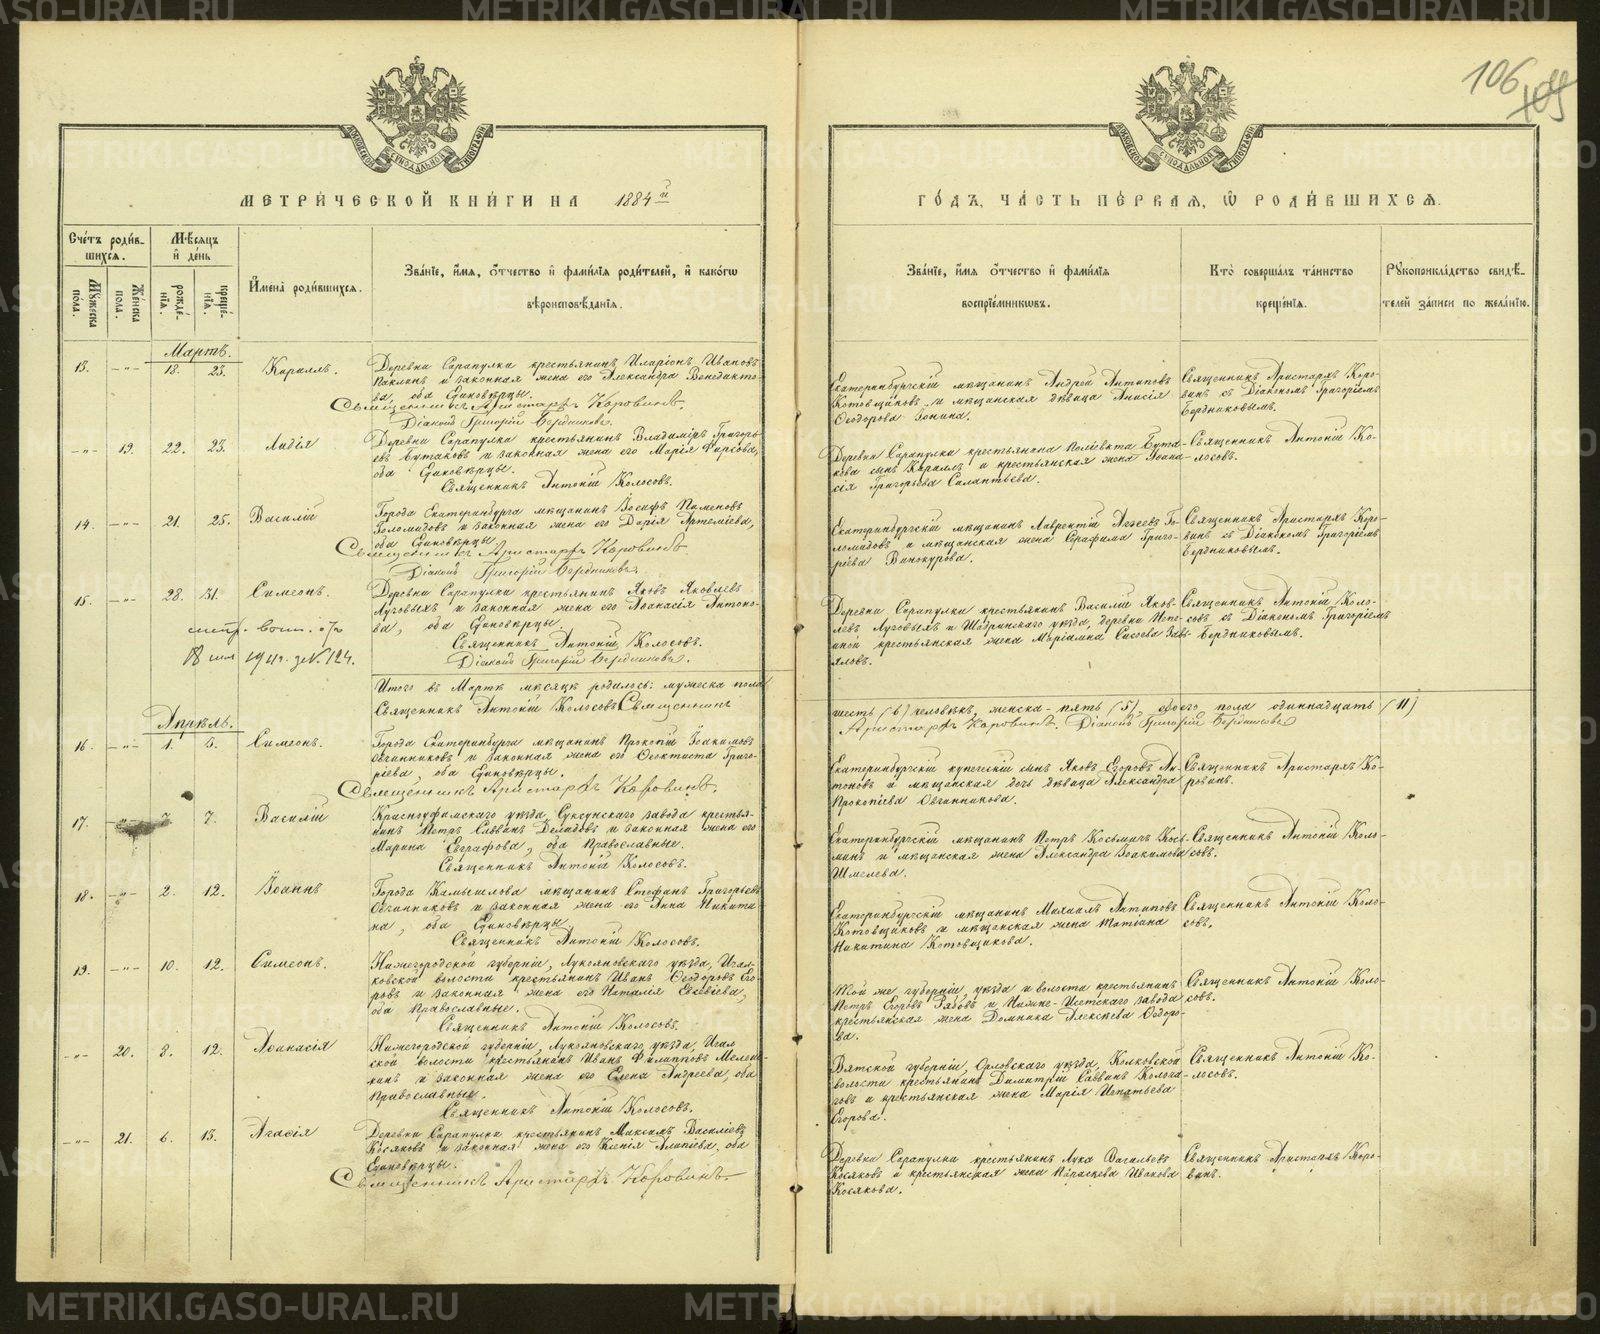 106
105
МОСКОВСКОЙ СѴНОДАЛЬНОЙ ТИПОГРАФІИ
МОСКОВСКОЙ СѴНОДАЛЬНОЙ ТИПОГРАФІИ
МЕТРИ́ЧЕСКОЙ КНИ́ГИ НА 1884й
ГО́ДЪ, ЧА́СТЬ ПЕ́РВАЯ, Ѽ РОДИ́ВШИХСЯ.
Счётъ роди́вшихся.
Мꙋ́жеска пола.
Же́нска пола.
Мѣ́сяцъ и де́нь
рожде́нїя.
креще́нїя.
И҆мена̀ роди́вшихся.
Зва́нїе, и҆́мя, ѻ҆́тчество и҆ фами́лїя роди́телей, и҆ како́гѡ вѣроисповѣ́данїя.
Зва́нїе, и҆́мя ѻ҆́тчество и҆ фами́лїя воспрїе́мникѡвъ.
Кто̀ соверша́лъ та́инство креще́нїя.
Рꙋкоприкла́дство свидѣ́телей за́писи по жела́нїю.
Мартъ.
13. -„- 18. 23. Кириллъ.
Деревни Сарапулка крестьянинъ Иларіонъ Ивановъ
Паклинъ и законная жена его Александра Венедикто-
ва, оба Единовѣрцы.
Священникъ Аристархъ Коровинъ.
Діаконъ Григорій Бердниковъ.
Екатеринбургскій мѣщанинъ Андрей Антиповъ
Котовщиковъ и мѣщанская дѣвица Анисія
Ѳеодорова Зонина.
Священникъ Аристархъ Коро-
винъ съ Діакономъ Григоріемъ
Бердниковымъ.
-„- 19. 22. 23. Лидія
Деревни Сарапулка крестьянинъ Владиміръ Григорь-
евъ Бутаковъ и законная жена его Марія Фирсова,
оба Единовѣрцы.
Священникъ Антоній Колосовъ.
Деревни Сарапулка крестьянина Поліевкта Бута-
кова сынъ Кириллъ и крестьянская жена Ѳеона-
сія Григорьева Силантьева.
Священникъ Антоній Ко-
лосовъ.
14. -„- 21. 25. Василій
Города Екатеринбурга мѣщанинъ Іосифъ Пименовъ
Голомидовъ и законная жена его Дарія Артеміева,
оба Единовѣрцы.
Священникъ Аристархъ Коровинъ.
Діаконъ Григорій Бердниковъ.
Екатеринбургскій мѣщанинъ Лаврентій Агеевъ Го-
ломидовъ и мѣщанская жена Серафима Григо-
ріева Винокурова.
Священникъ Аристархъ Коро-
винъ съ Діакономъ Григоріемъ
Бердниковымъ.
15. -„- 28. 31. Симеонъ.
Деревни Сарапулка крестьянинъ Яковъ Яковлевъ
Луговыхъ и законная жена его Аѳанасія Антоно-
ва, оба Единовѣрцы.
Священникъ Антоній Колосовъ.
Діаконъ Григорій Бердниковъ.
18 194 г. № 124.
Деревни Сарапулки крестьянинъ Василій Яков-
левъ Луговыхъ и Шадринскаго уѣзда, деревни
крестьянская жена Маріамна Сысоева Завь-
яловъ.
Священникъ Антоній Коло-
совъ съ Діакономъ Григоріемъ
Бердниковымъ.
Итого въ Мартѣ мѣсяцѣ родилось: мужеска пола
шесть (6) человѣкъ, женска - пять (5), обоего пола одиннадцать (11)
Священникъ Антоній Колосовъ Священникъ
Аристархъ Коровинъ. Діаконъ Григорій Бердниковъ
Апрѣль.
16. -„- 1. Симеонъ.
Города Екатеринбурга мѣщанинъ Прокопій Іоакимовъ
Овчинниковъ и законная жена его Ѳеоктиста Григо-
ріева, оба Единовѣрцы.
Священникъ Аристархъ Коровинъ.
Екатеринбургскій купеческій сынъ Яковъ Егоровъ Ан-
тоновъ и мѣщанская дочь дѣвица Александра
Прокопіева Овчинникова.
Священникъ Аристархъ Ко-
ровинъ.
17. 7. Василій
Красноуфимскаго уѣзда Суксунскаго завода крестья-
нинъ Петръ Саввинъ и законная жена его
Марина Евграфова, оба Православные.
Священникъ Антоній Колосовъ.
Екатеринбургскій мѣщанинъ Петръ Косьминъ Кось-
минъ и мѣщанская жена Александра Іоакимова
Шмелева.
Священникъ Антоній Коло-
совъ.
18. -„- 2. 12. Іоаннъ
Города Камышлова мѣщанинъ Стефанъ Григорьевъ
Овчинниковъ и законная жена его Анна Никити-
на, оба Единовѣрцы.
Священникъ Антоній Колосовъ.
Екатеринбургскій мѣщанинъ Михаилъ Антиповъ
Котовщиковъ и мѣщанская жена Татіана
Никитина Котовщикова.
Священникъ Антоній Коло-
совъ.
19. -„- 10. 12. Симеонъ.
Нижегородской губерніи, Лукояновскаго уѣзда,
волости крестьянинъ Иванъ Ѳеодоровъ Его-
ровъ и законная жена его Наталія Евсевіева,
оба Православные.
Священникъ Антоній Колосовъ.
Той же губерніи, уѣзда и волости крестьянинъ
Петръ Егоровъ Рябовъ и Нижне-Исетскаго завода
крестьянская жена Домника Алексѣева Ѳедоро-
ва.
Священникъ Антоній Коло-
совъ.
-„- 20. 8. 12. Аѳанасія
Нижегородской губерніи, Лукояновскаго уѣзда,
волости крестьянинъ Иванъ Филипповъ Мелеш-
кинъ и законная жена его Елена Андреева, оба
Православные.
Священникъ Антоній Колосовъ.
Вятской губерніи, Орловскаго уѣзда, Колковской
волости крестьянинъ Димитрій Саввинъ Колога-
говъ и крестьянская жена Марія Игнатьева
Егорова.
Священникъ Антоній Ко-
лосовъ.
-„- 21. 6. 13. Агаѳія
Деревни Сарапулки крестьянинъ Максимъ Василіевъ
Косяковъ и законная жена его Ксенія Алипіева, оба
Единовѣрцы.
Священникъ Аристархъ Коровинъ.
Деревни Сарапулки крестьянинъ Лука Васильевъ
Косяковъ и крестьянская жена Параскева Иванова
Косякова.
Священникъ Аристархъ Коро-
винъ.
METRIKI.GASO-URAL.RU